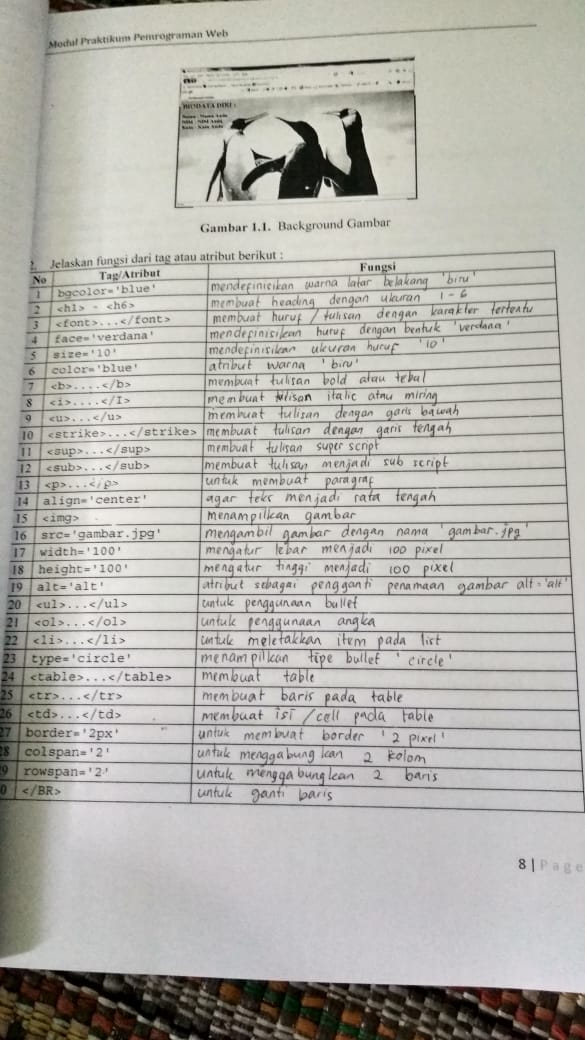 Modul Praktikum Pemrograman Web
BIODATA DIRI :
Gambar 1.1. Background Gambar
2. Jelaskan fungsi dari tag atau atribut berikut :
No Tag/Atribut Fungsi
1 bgcolor='blue' mendefinisikan warna latar belakang 'biru'
2 <h1> - <h6> membuat heading dengan ukuran 1-6
3 <font>...</font> membuat huruf / tulisan dengan karakter tertentu
4 face='verdana' mendefinisikan huruf dengan bentuk 'verdana'
5 size='10' mendefinisikan ukuran huruf '10'
6 color='blue' atribut warna 'biru'
7 <b>....</b> membuat tulisan bold atau tebal
8 <i>....</I> membuat tulisan italic atau miring
9 <u>...</u> membuat tulisan dengan garis bawah
10 <strike>...</strike> membuat tulisan dengan garis tengah
11 <sup>...</sup> membuat tulisan super script
12 <sub>...</sub> membuat tulisan menjadi sub script
13 <p>...</p> untuk membuat paragraf
14 align='center' agar teks menjadi rata tengah
15 <img> menampilkan gambar
16 src='gambar.jpg' mengambil gambar dengan nama 'gambar.jpg'
17 width='100' mengatur lebar menjadi 100 pixel
18 height='100' mengatur tinggi menjadi 100 pixel
19 alt='alt' atribut sebagai pengganti penamaan gambar alt='alt'
20 <ul>...</ul> untuk penggunaan bullet
21 <ol>...</ol> untuk penggunaan angka
22 <li>...</li> untuk meletakkan item pada list
23 type='circle' menampilkan tipe bullet 'circle'
24 <table>...</table> membuat table
25 <tr>...</tr> membuat baris pada table
26 <td>...</td> membuat isi /cell pada table
27 border='2px' untuk membuat border '2 pixel'
8 colspan='2' untuk menggabungkan 2 kolom
9 rowspan='2' untuk menggabungkan 2 baris
0 </BR> untuk ganti baris
8 | Page